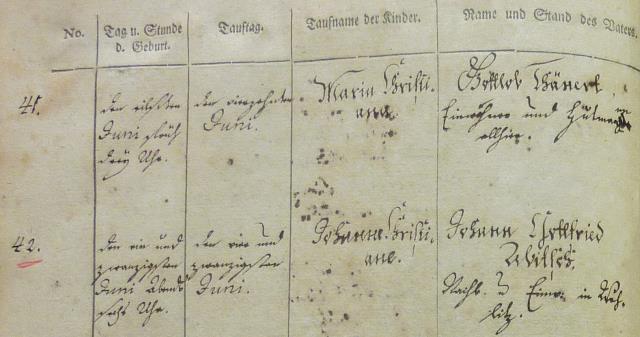 No.
Tag u. Stunde
d. Geburt.
Tauftag.
Taufname der Kinder.
Name und Stand des Vaters.
41.
den eilften
Juni früh
drey Uhr.
den vierzehnten
Juni.
Maria Christi-
ane.
Gottlob
Einwohner und
allhier.
42.
den ein und
zwanzigsten
Juni Abends
sechs Uhr.
den vier und
zwanzigsten
Juni.
Johanne Christi-
ane.
Johann Gottfried
Nachb. u. Einw. in